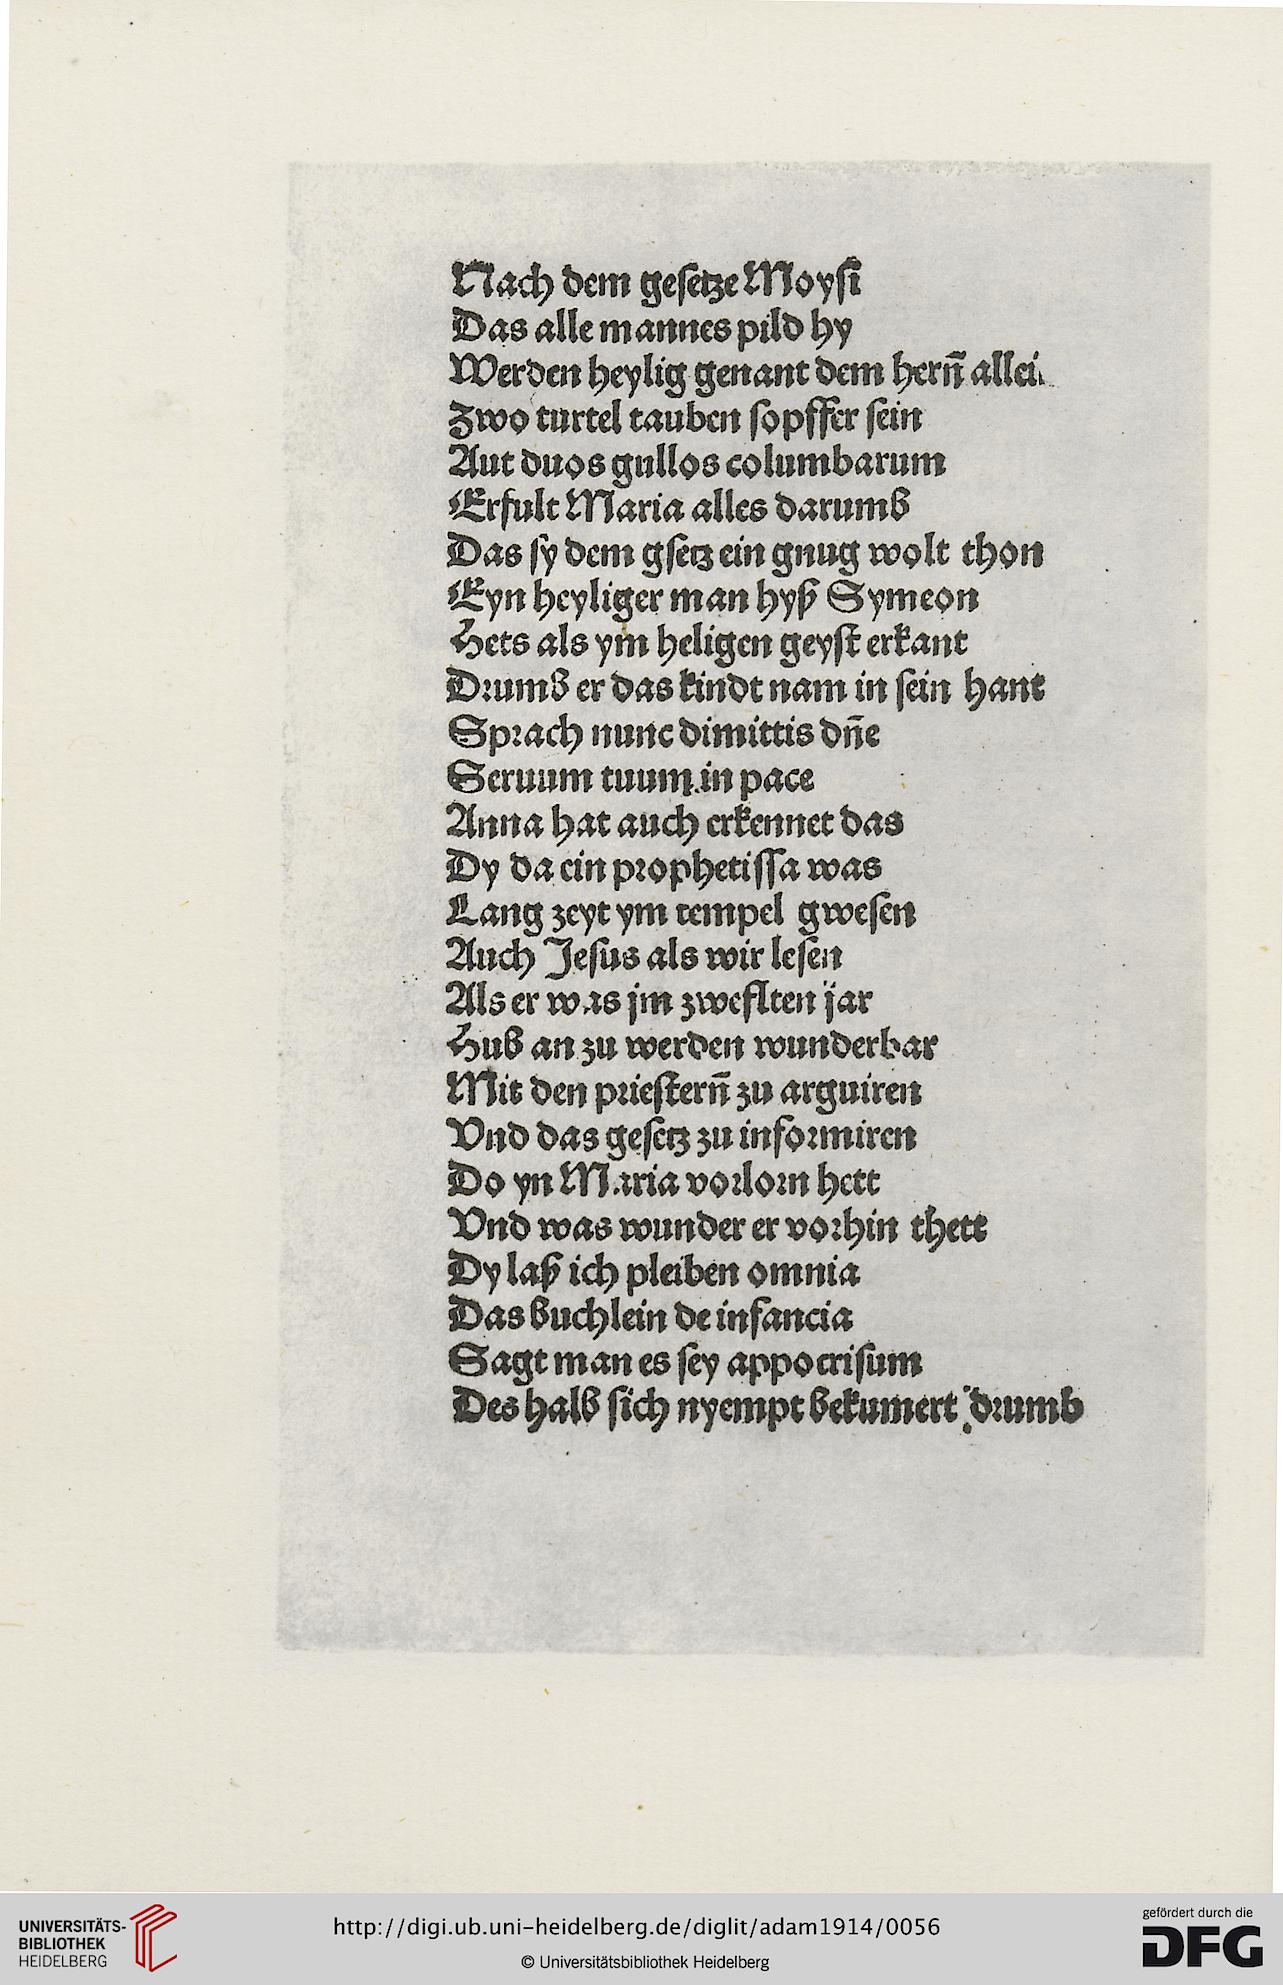 Nach dem gesetze Moysi
Das alle mannes pild hy
Werden heylig genant dem hern̄ allei
Zwo turtel tauben sopffer sein
Aut duos gullos columbarum
Erfult Maria alles darumb
Das sy dem gsetz ein gnug wolt thon
Eyn heyliger man hyß Symeon
Hets als ym heligen geyst erkant
Drumb er das kindt nam in sein hant
Sprach nunc dimittis dn̄e
Seruum tuum in pace
Anna hat auch erkennet das
Dy da ein prophetissa was
Lang zeyt ym tempel gwesen
Auch Jesus als wir lesen
Als er was jm zweflten jar
Hub an zu werden wunderbar
Mit den priestern̄ zu arguiren
Vnd das gesetz zu informiren
Do yn Maria vorlorn hett
Vnd was wunder er vorhin thett
Dy laß ich pleiben omnia
Das buchlein de infancia
Sagt man es sey appocrifum
Des halb sich nyempt bekumert drumb
UNIVERSITÄTS-
BIBLIOTHEK
HEIDELBERG
http://digi.ub.uni-heidelberg.de/diglit/adam1914/0056
© Universitätsbibliothek Heidelberg
gefördert durch die
DFG